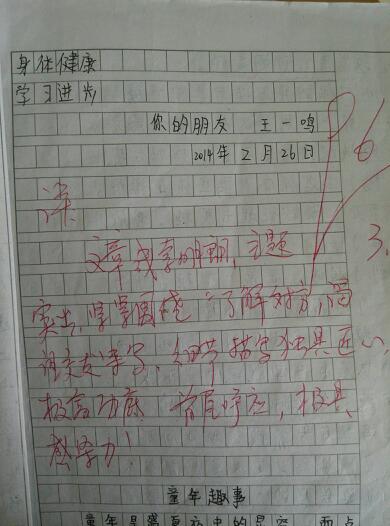 身体健康
学习进步
你的朋友 王一鸣
2014年2月26日
6
3.
评:
文章线索明朗,主题
突出,紧紧围绕“了解对方,
细节描写独具匠心,
极富功底 首尾呼应,极具
感染力!
童年趣事
童年是盛夏夜中的星空,而点